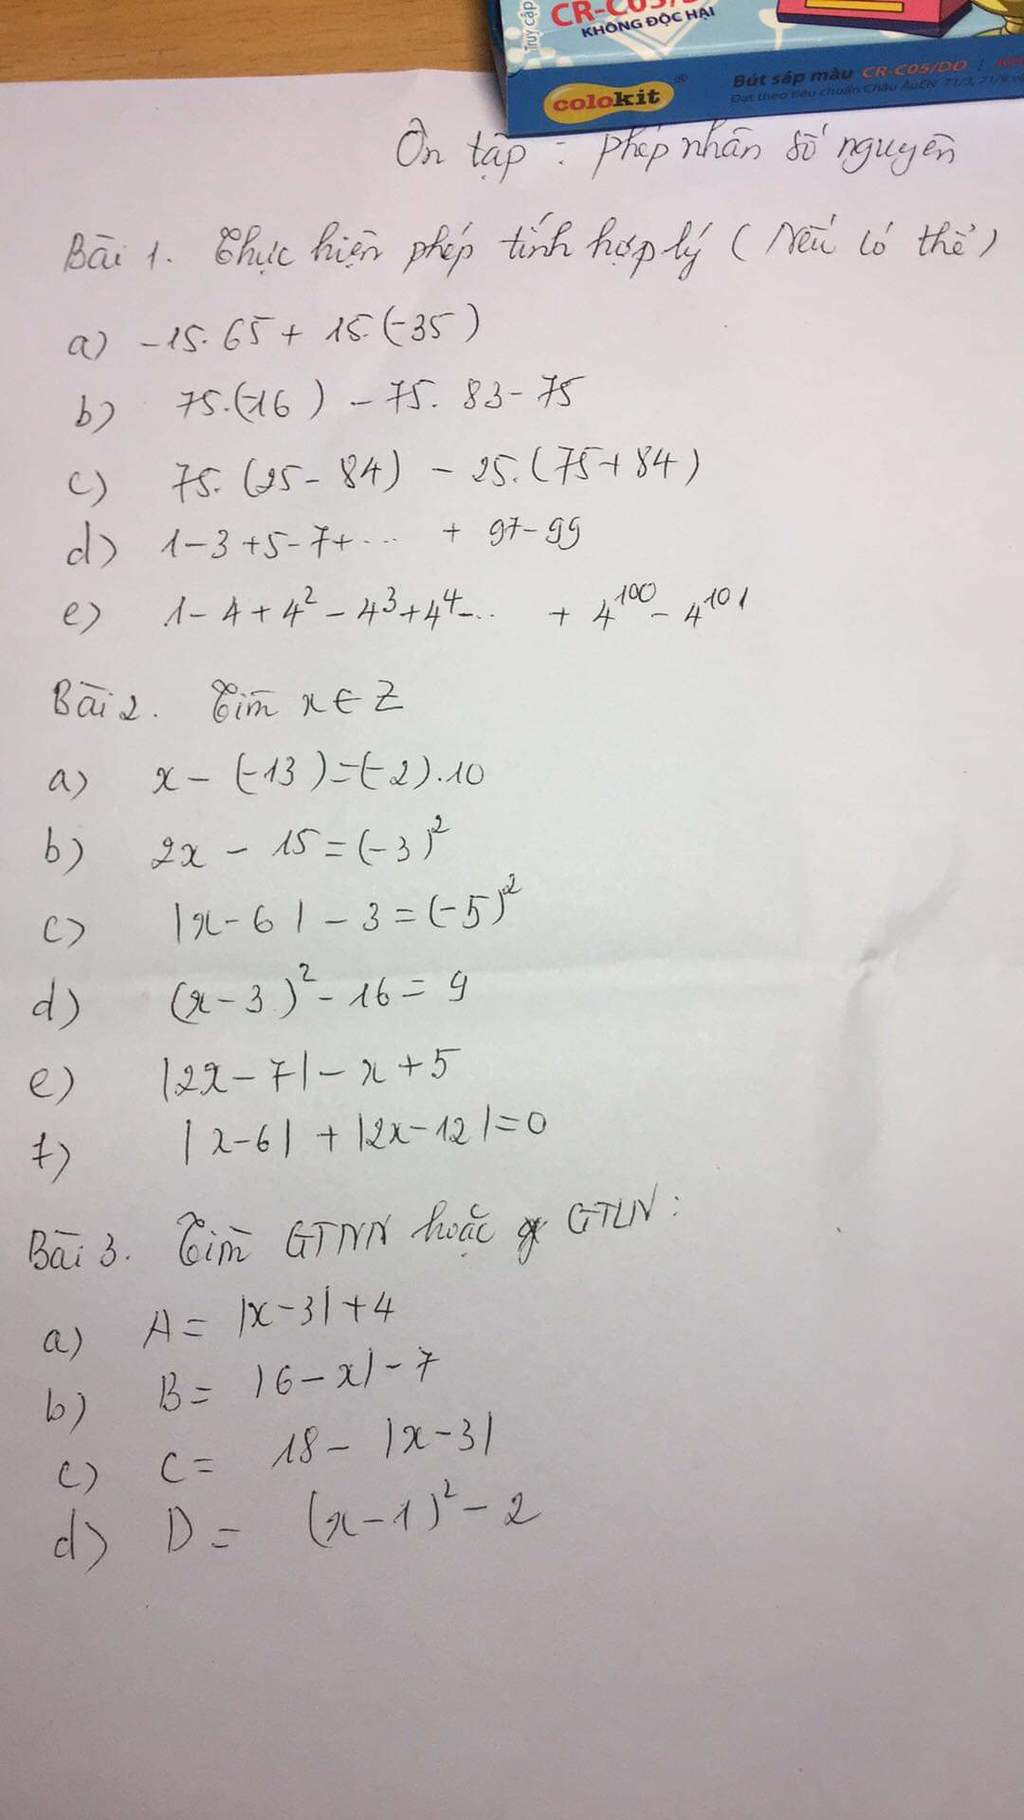 Truy cập
CR-C05/D
KHÔNG ĐỘC HẠI
colokit ®
Bút sáp màu CR-C05/DD
Đạt theo tiêu chuẩn Châu Âu EN 71/3, 71/9
Ôn tập : phép nhân số nguyên
Bài 1. Thực hiện phép tính hợp lý ( Nếu có thể )
a) -15.65 + 15.(-35)
b) 75.(-16) - 75. 83 - 75
c) 75. (25 - 84) - 25. (75 + 84)
d) 1 - 3 + 5 - 7 + ... + 97 - 99
e) 1 - 4 + 4² - 4³ + 4⁴ - ... + 4¹⁰⁰ - 4¹⁰¹
Bài 2. Tìm x ∈ Z
a) x - (-13) = (-2).10
b) 2x - 15 = (-3)²
c) |x - 6| - 3 = (-5)²
d) (x - 3)² - 16 = 9
e) |2x - 7| - x + 5
f) |x - 6| + |2x - 12| = 0
Bài 3. Tìm GTNN hoặc GTLN :
a) A = |x - 3| + 4
b) B = |6 - x| - 7
c) C = 18 - |x - 3|
d) D = (x - 1)² - 2